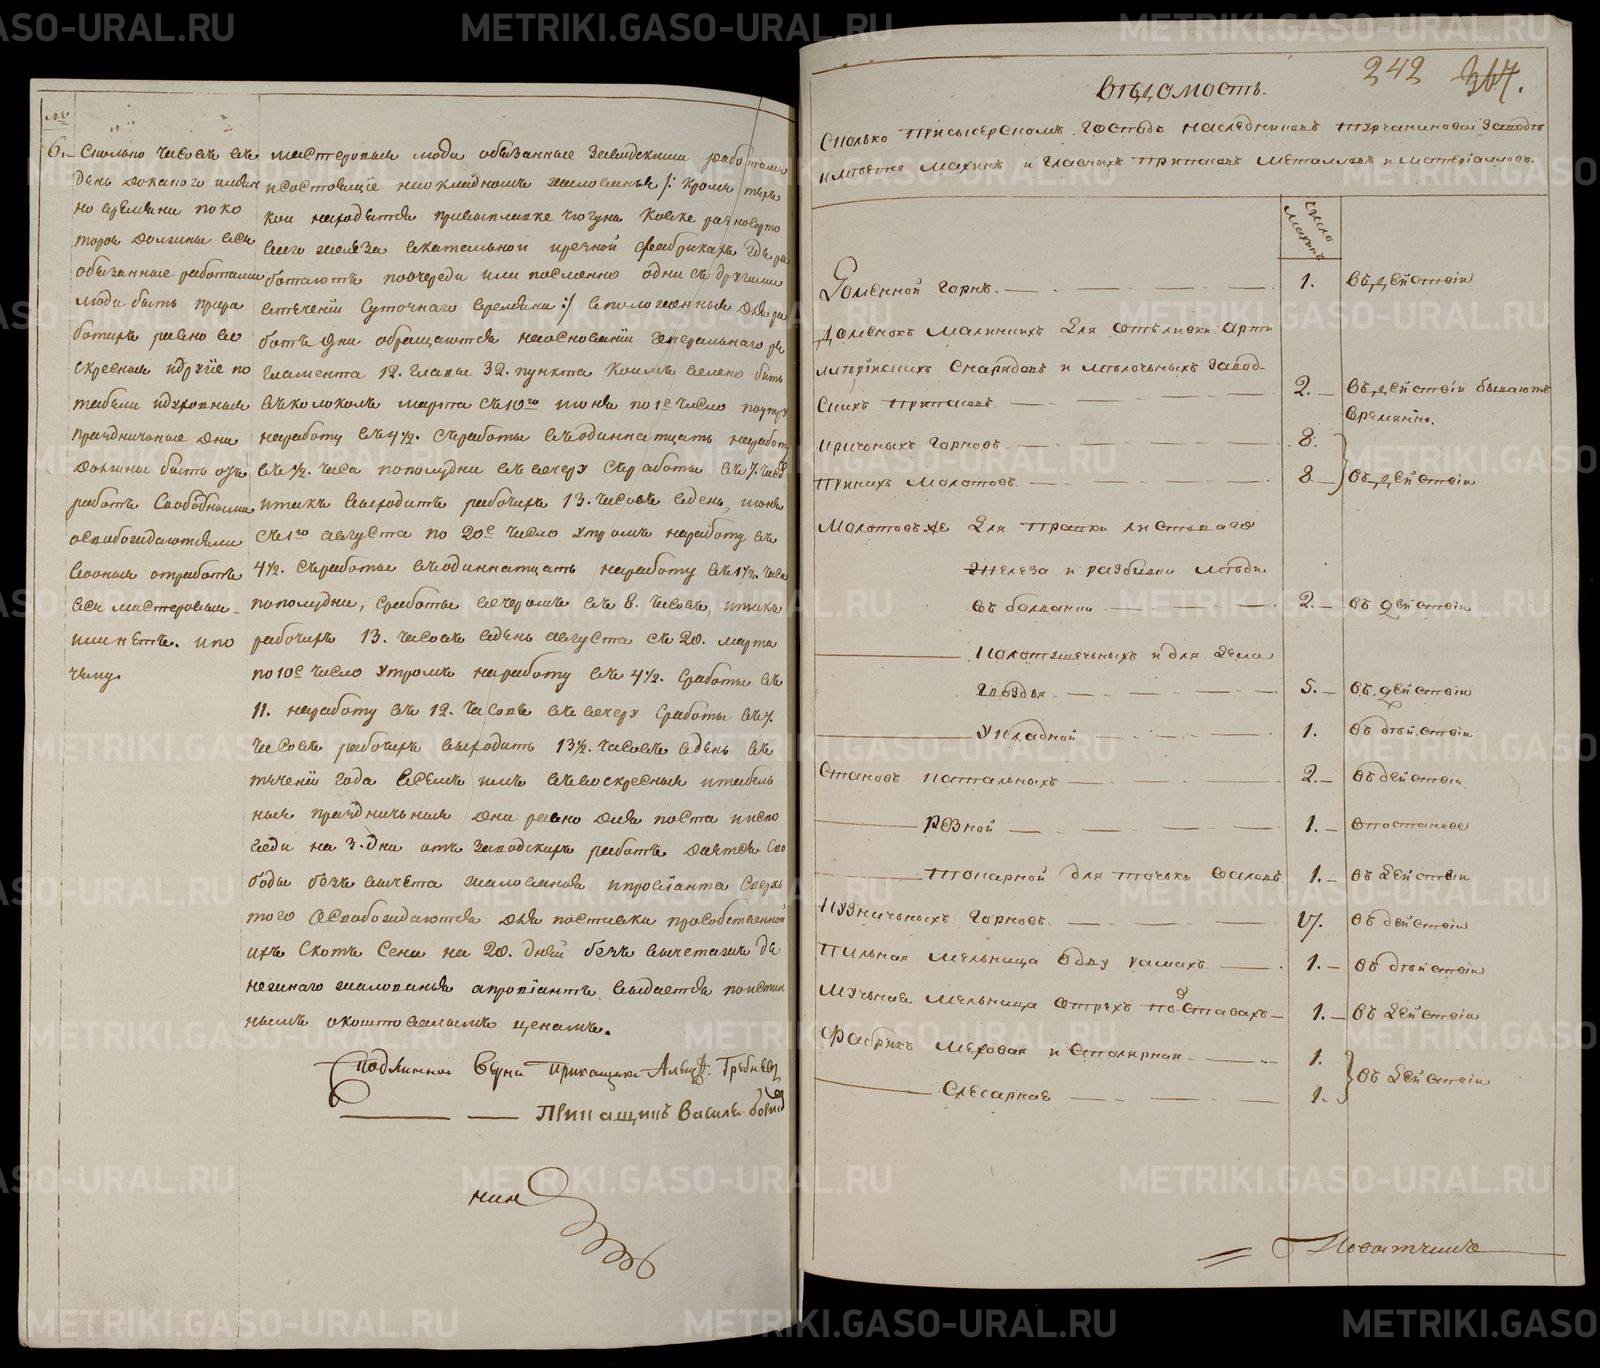 №
6.
Сколько часовъ въ
день доколого имян
но времяни поко
торое должны все
обязанные работами
люди быть прира
ботахъ равно во
скресныя идругие по
табели идуховныя
праздничныя дни
должны быть отъ
работъ свободными
освобождаютсяли
вооныя отработъ
все мастеровыя
или нетъ. ипо
чему.
мастеровыя люди обязанные заводскими работами
исостоящие наокладномъ жалованье /: кроме техъ
кои находятся привыплавке чугуна ковке разносорто
ваго железа вкательной иречной фабрикахъ где ра
ботаютъ поочереди или посменно одни съ другими
втечении суточнаго времяни :/ вположенныя для ра
ботъ дни обращаются наосновании генеральнаго ре
гламента 12. главы 32. пункта коимъ велено быть
въколоколъ марта съ 10го июня по 1е число поутру
наработу въ 4½. съработы въодиннатцать наработу
въ ½. часа пополудни въвечеру съработы въ 7. часов
итакъ выходитъ рабочихъ 13. часовъ вдень, июня
съ 1го августа по 20е число утромъ наработу въ
4½. съработы въодиннатцать наработу въ 1½. часа
пополудни, сработы вечеромъ въ 8. часовъ, итакъ
рабочихъ 13. часовъ вдень августа съ 20. марта
по 10е число утромъ наработу въ 4½. сработы въ
11. наработу въ 12. часовъ ввечеру сработы въ 7.
часовъ рабочихъ выходитъ 13½. часовъ вдень въ
течении года всемъ имъ въвоскресныя итабель
ныя праздничныя дни равно для поста испо
веди на 3. дни отъ заводскихъ работъ дается сво
боды безъ вычета жалованья ипровианта сверхъ
того освобождаются для поставки просабственной
ихъ скотъ сена на 20. дней безъ вычетажъ де
нежнаго жалованья апровиантъ выдается поистин
нымъ окоштовавшимъ ценамъ.
Подлинное
Приказщикъ
Прикащикъ Василей
нинъ
242 367.
Ведомость.
Сколько присысерскомъ господъ наследниковъ Турчаниновой заводе
имеется махинъ и главныхъ припасовъ металловъ и материаловъ.
число
махинъ
Доменной горнъ. 1. въ действiи
Доменокъ маленкихъ для отъливки арти
ллерiйскихъ снарядовъ и мелочныхъ завод-
скихъ припасовъ 2. въ действiи бываютъ
времянно.
кричныхъ горновъ 8.
такихъ молотовъ 8. въ действiи
Молотовъже для правки листоваго
железа и разбивки меди
въ болванки 2. въ действiи
колотушечныхъ и для дела
гвоздья 5. въ действiи
укладной 1. въ действiи
Становъ катальныхъ 2. въ действiи
резной 1. въ остановке
токарной для точки валовъ 1. въ действiи
кузнечныхъ горновъ 17. въ действiи
Пильная мельница о дву рамахъ 1. въ действiи
Мучьная мельница отрехъ поставахъ 1. въ действiи
Фабрикъ меховая и столярная 1.
въ действiи
слесарная 1.